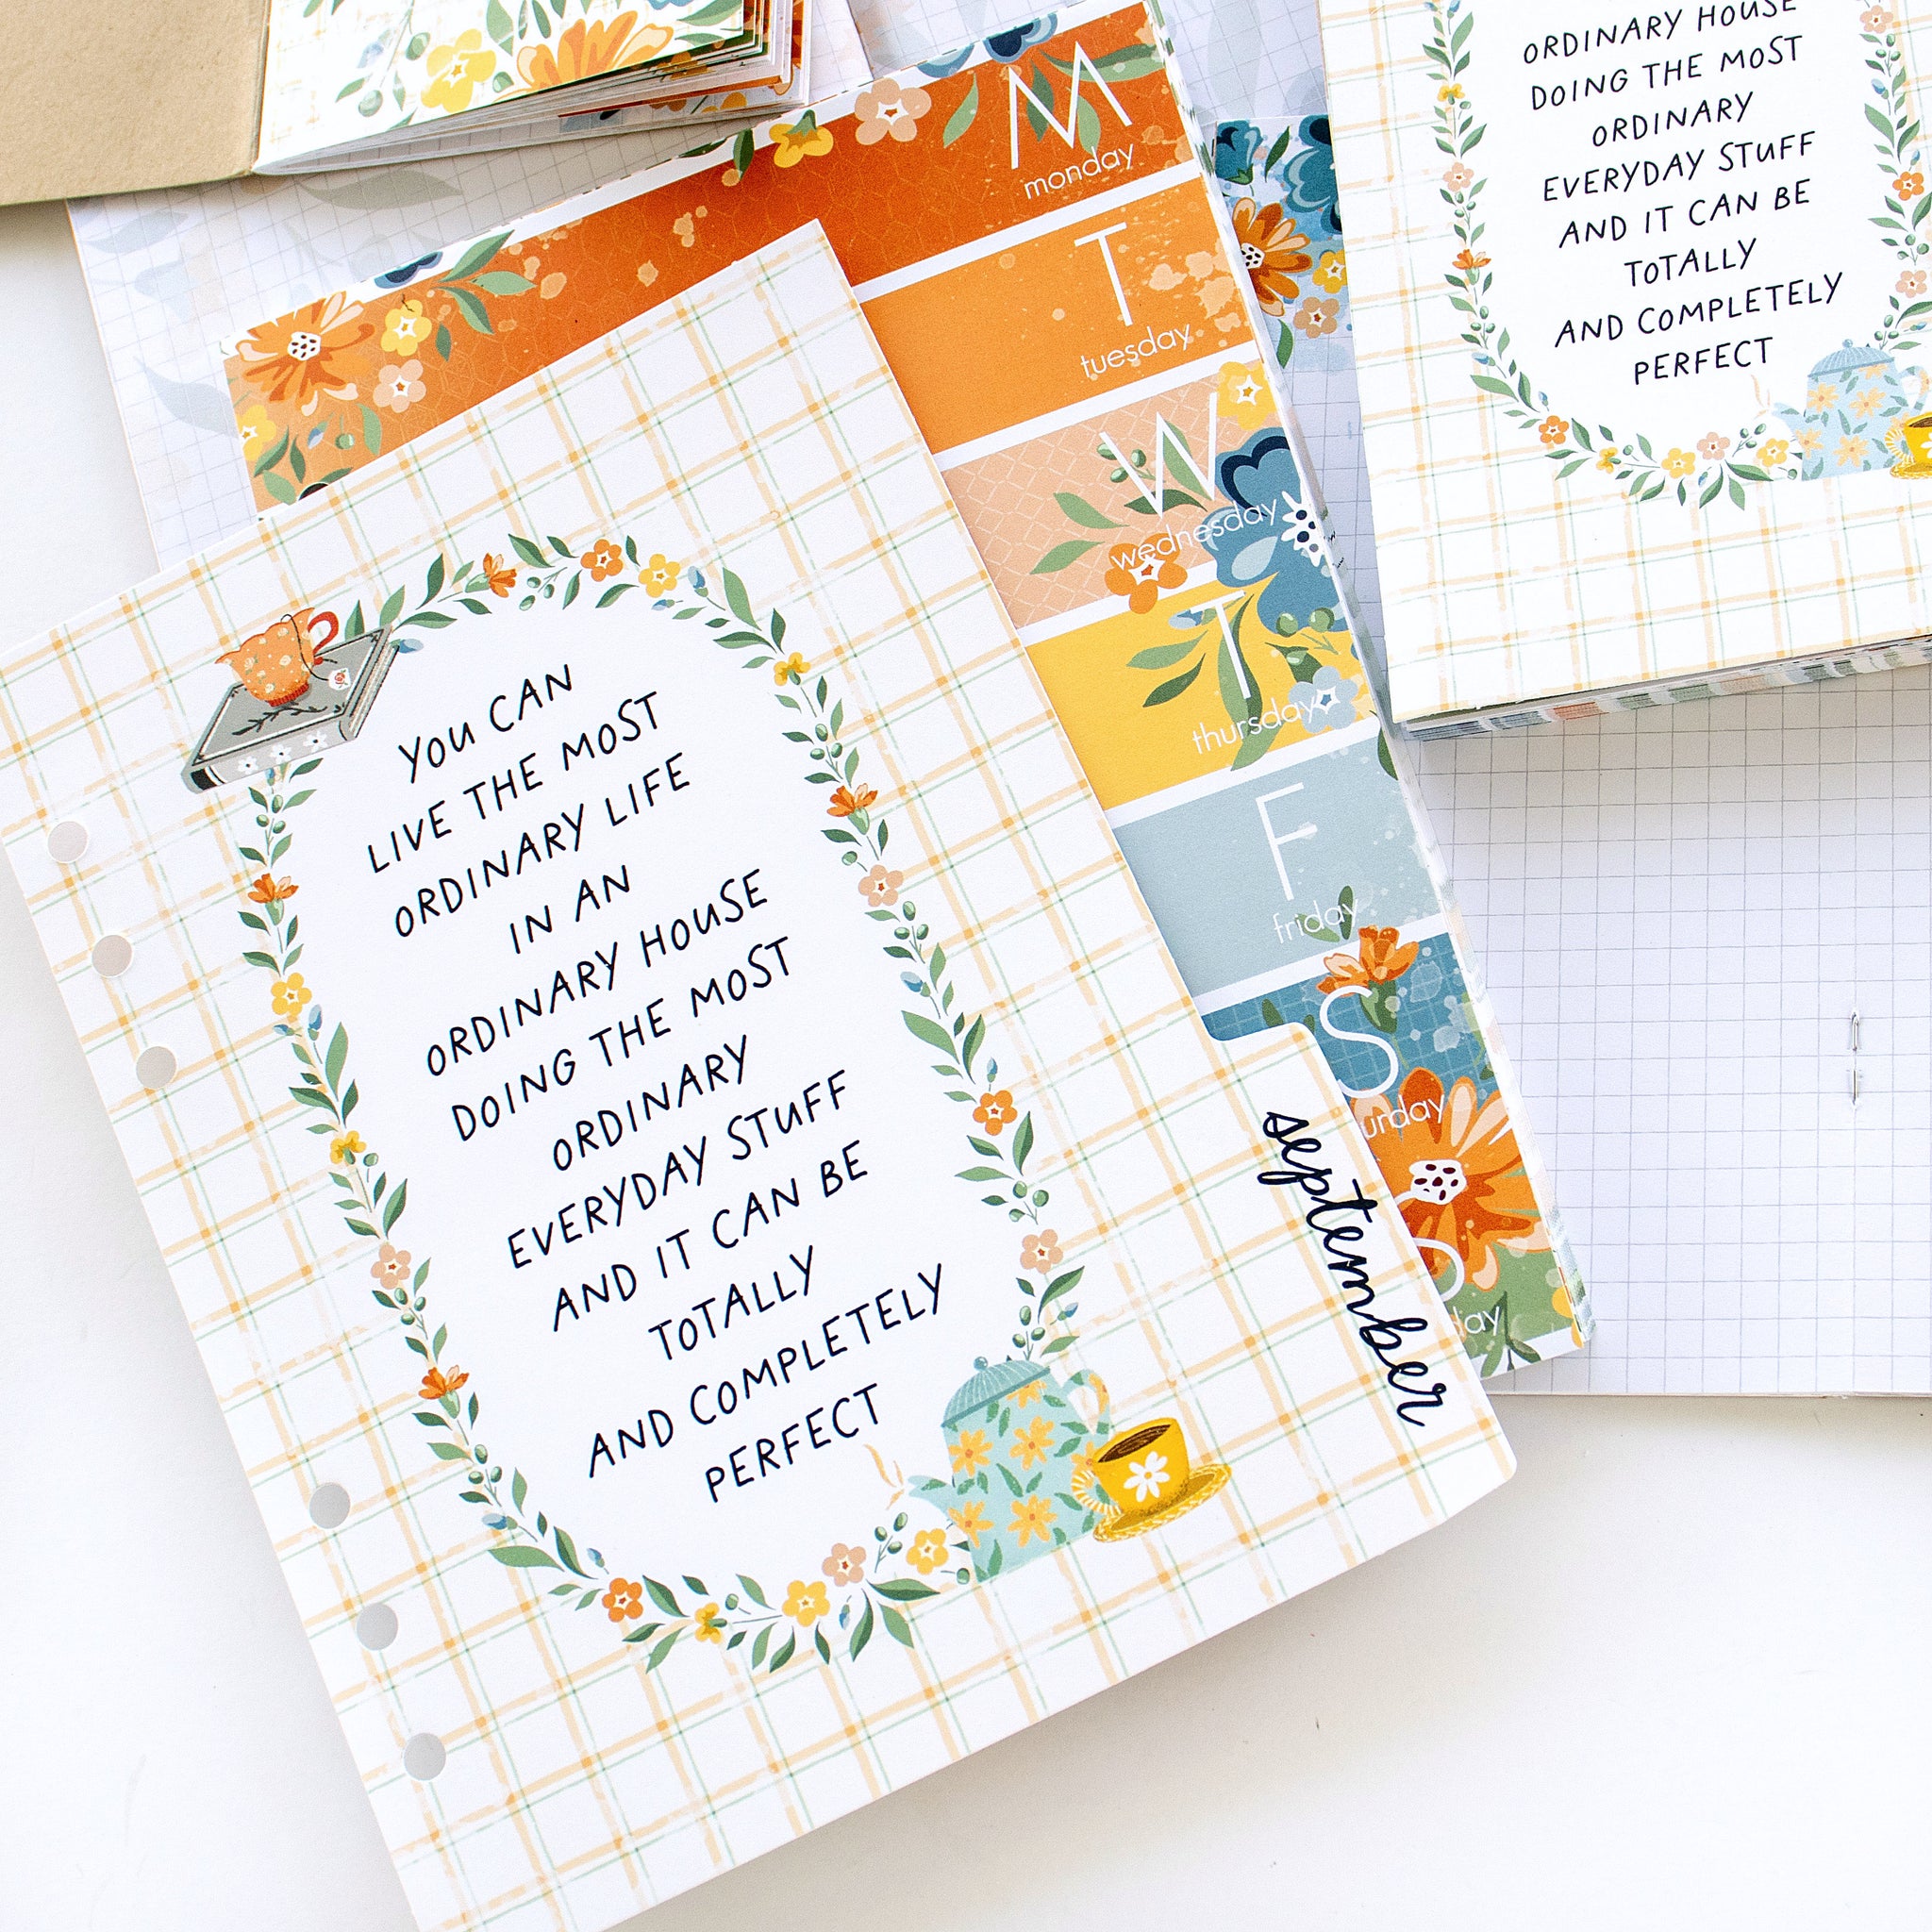 YOU CAN
LIVE THE MOST
ORDINARY LIFE
IN AN
ORDINARY HOUSE
DOING THE MOST
ORDINARY
EVERYDAY STUFF
AND IT CAN BE
TOTALLY
AND COMPLETELY
PERFECT
september
M
monday
T
tuesday
W
wednesday
T
thursday
F
friday
S
urday
S
day
ORDINARY HOUSE
DOING THE MOST
ORDINARY
EVERYDAY STUFF
AND IT CAN BE
TOTALLY
AND COMPLETELY
PERFECT